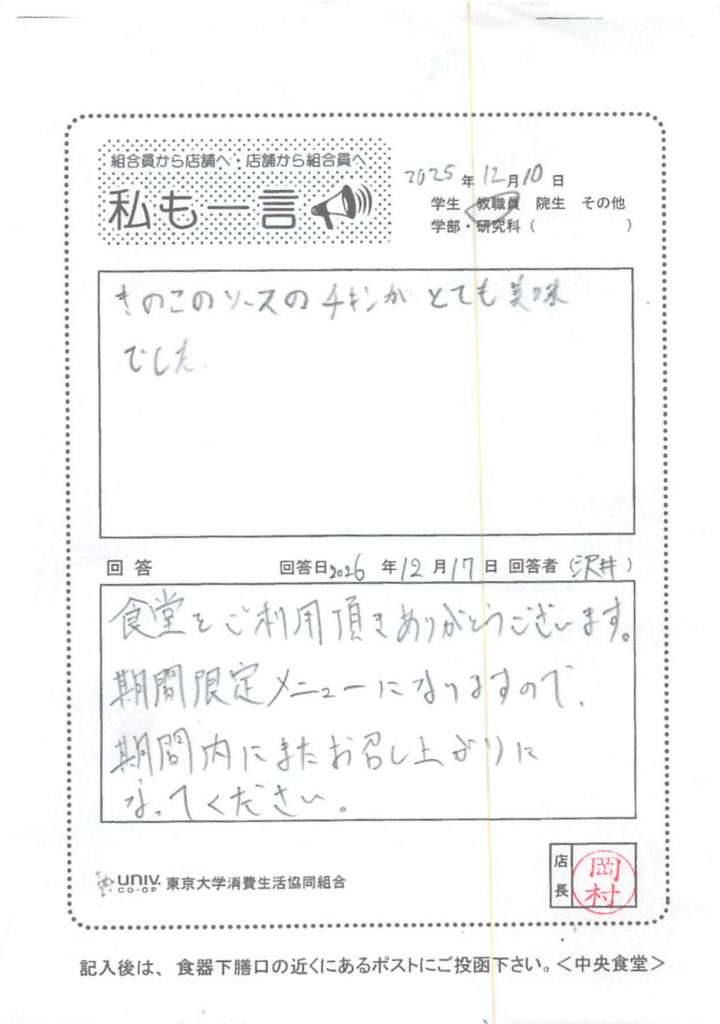 組合員から店舗へ・店舗から組合員へ
私も一言
2025年12月10日
学生 教職員 院生 その他
学部・研究科( )
きのこのソースのチキンがとても美味
でした
回答 回答日2026年12月17日 回答者(沢井)
食堂をご利用頂きありがとうございます。
期間限定メニューになりますので、
期間内にまたお召し上がりに
なってください。
店長
岡村
UNIV.
CO-OP
東京大学消費生活協同組合
記入後は、食器下膳口の近くにあるポストにご投函下さい。<中央食堂>